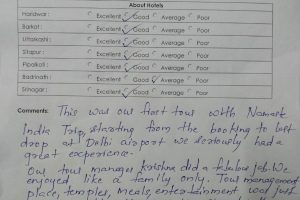 About Hotels
Haridwar : Excellent Good Average Poor
Barkot : Excellent Good Average Poor
Uttarkashi : Excellent Good Average Poor
Sitapur : Excellent Good Average Poor
Pipalkoti : Excellent Good Average Poor
Badrinath : Excellent Good Average Poor
Srinagar : Excellent Good Average Poor
Comments: This was our first tour with Namaste
India Trip, starting from the booking to last
drop at Delhi airport we seriously had a
great experience.
Our tour manager Krishna did a fabulous job. We
enjoyed like a family only. Tour management
place, temples, meals, entertainment was just